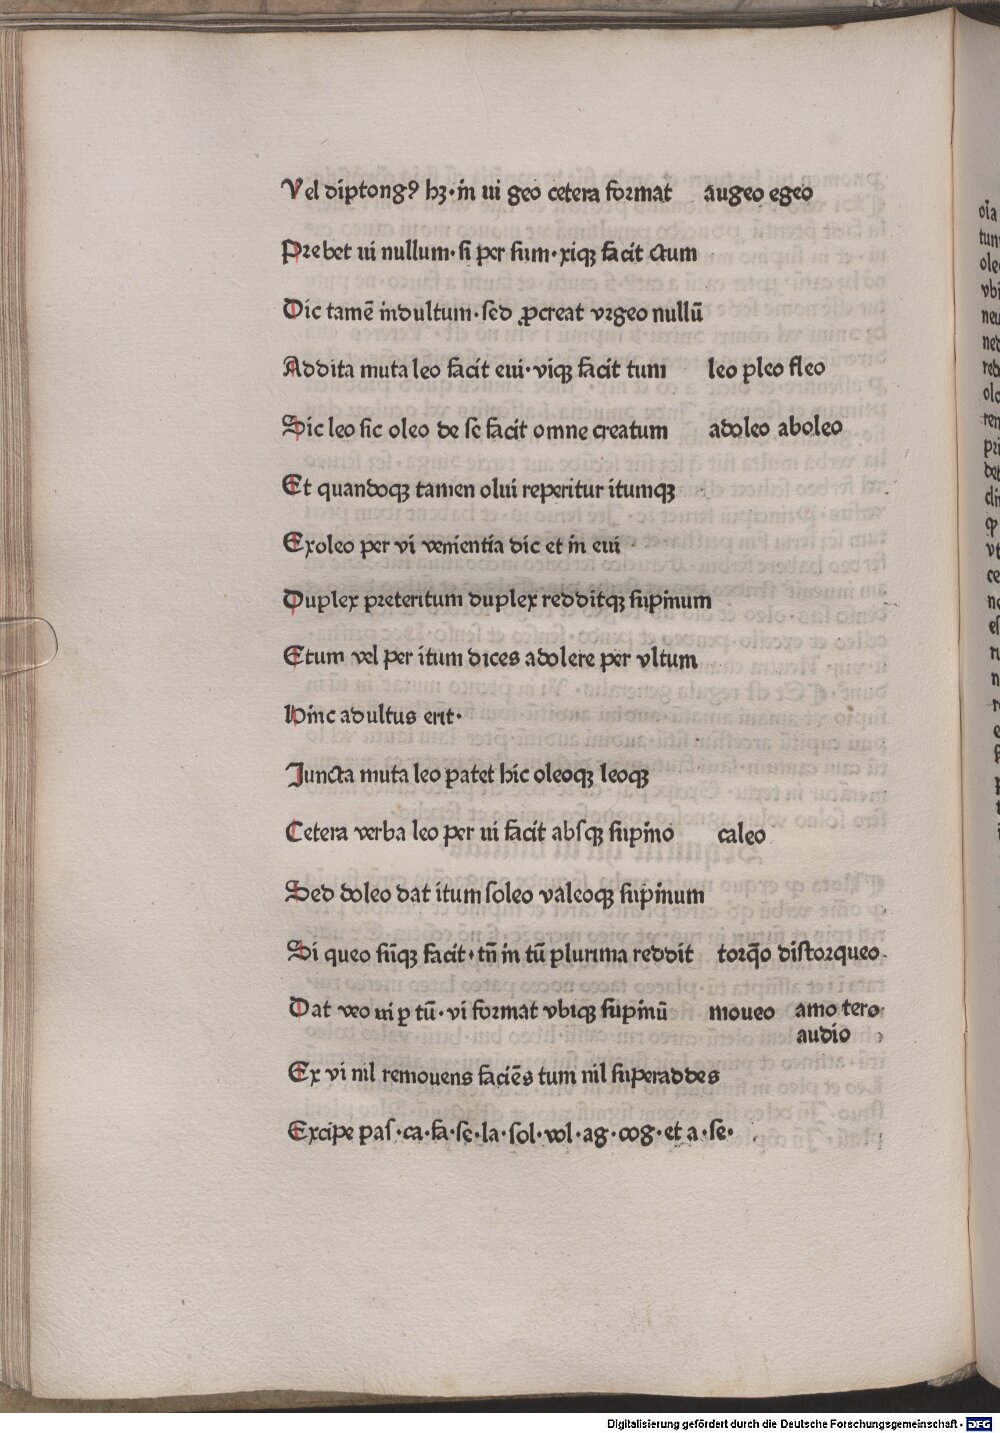 Vel diptongꝰ hꝫ· in ui geo cetera format augeo egeo
Prebet ui nullum· si per sum· xiqꝫ facit ctum
Dic tamē indultum· sed ꝓcreat vrgeo nullū
Addita muta leo facit eui· viqꝫ facit tum leo pleo fleo
Sic leo sic oleo de se facit omne creatum adoleo aboleo
Et quandoqꝫ tamen olui reperitur itumqꝫ
Exoleo per vi venientia dic et in eui
Duplex preteritum duplex redditqꝫ supinum
Etum vel per itum dices adolere per vltum
Hinc adultus erit·
Juncta muta leo patet hic oleoqꝫ leoqꝫ
Cetera verba leo per ui facit absqꝫ supino caleo
Sed doleo dat itum soleo valeoqꝫ supinum
Si queo siīqꝫ facit· tn̄ in tū plurima reddit torq̄o distorqueo
Dat veo ui ꝑ tū· vi format vbiqꝫ supinū moueo amo tero
audio
Ex vi nil remouens faciēs tum nil superaddes
Excipe pas· ca· fa· se· la· sol· vol· ag· cog· et a· se·
Digitalisierung gefördert durch die Deutsche Forschungsgemeinschaft - DFG